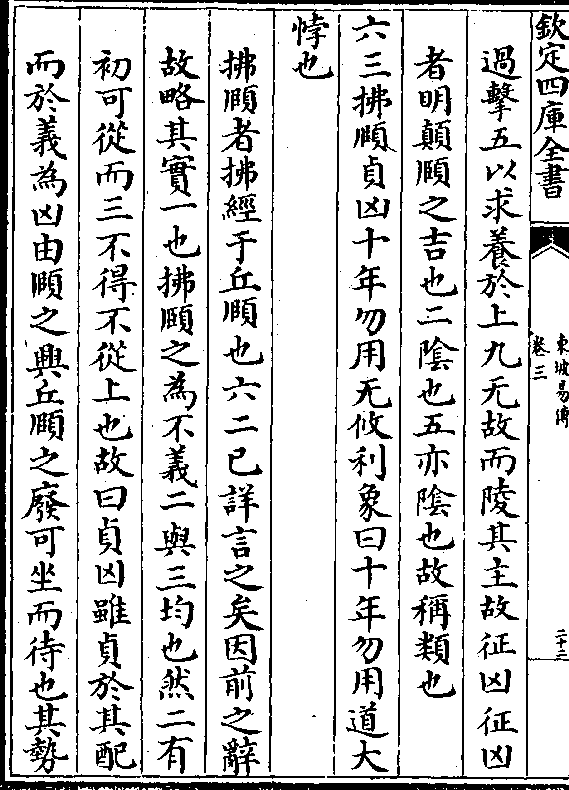 欽定四庫全書
東坡易傳
卷三
二十三
過擊五以求養於上九无故而陵其主故征凶征凶
者明顛頤之吉也二陰也五亦陰也故稱類也
六三拂頤貞凶十年勿用无攸利象曰十年勿用道大
悖也
拂頤者拂經于丘頤也六二已詳言之矣因前之辭
故略其實一也拂頤之為不義二與三均也然二有
初可從而三不得不從上也故曰貞凶雖貞於其配
而於義為凶由頤之興丘頤之廢可坐而待也其勢